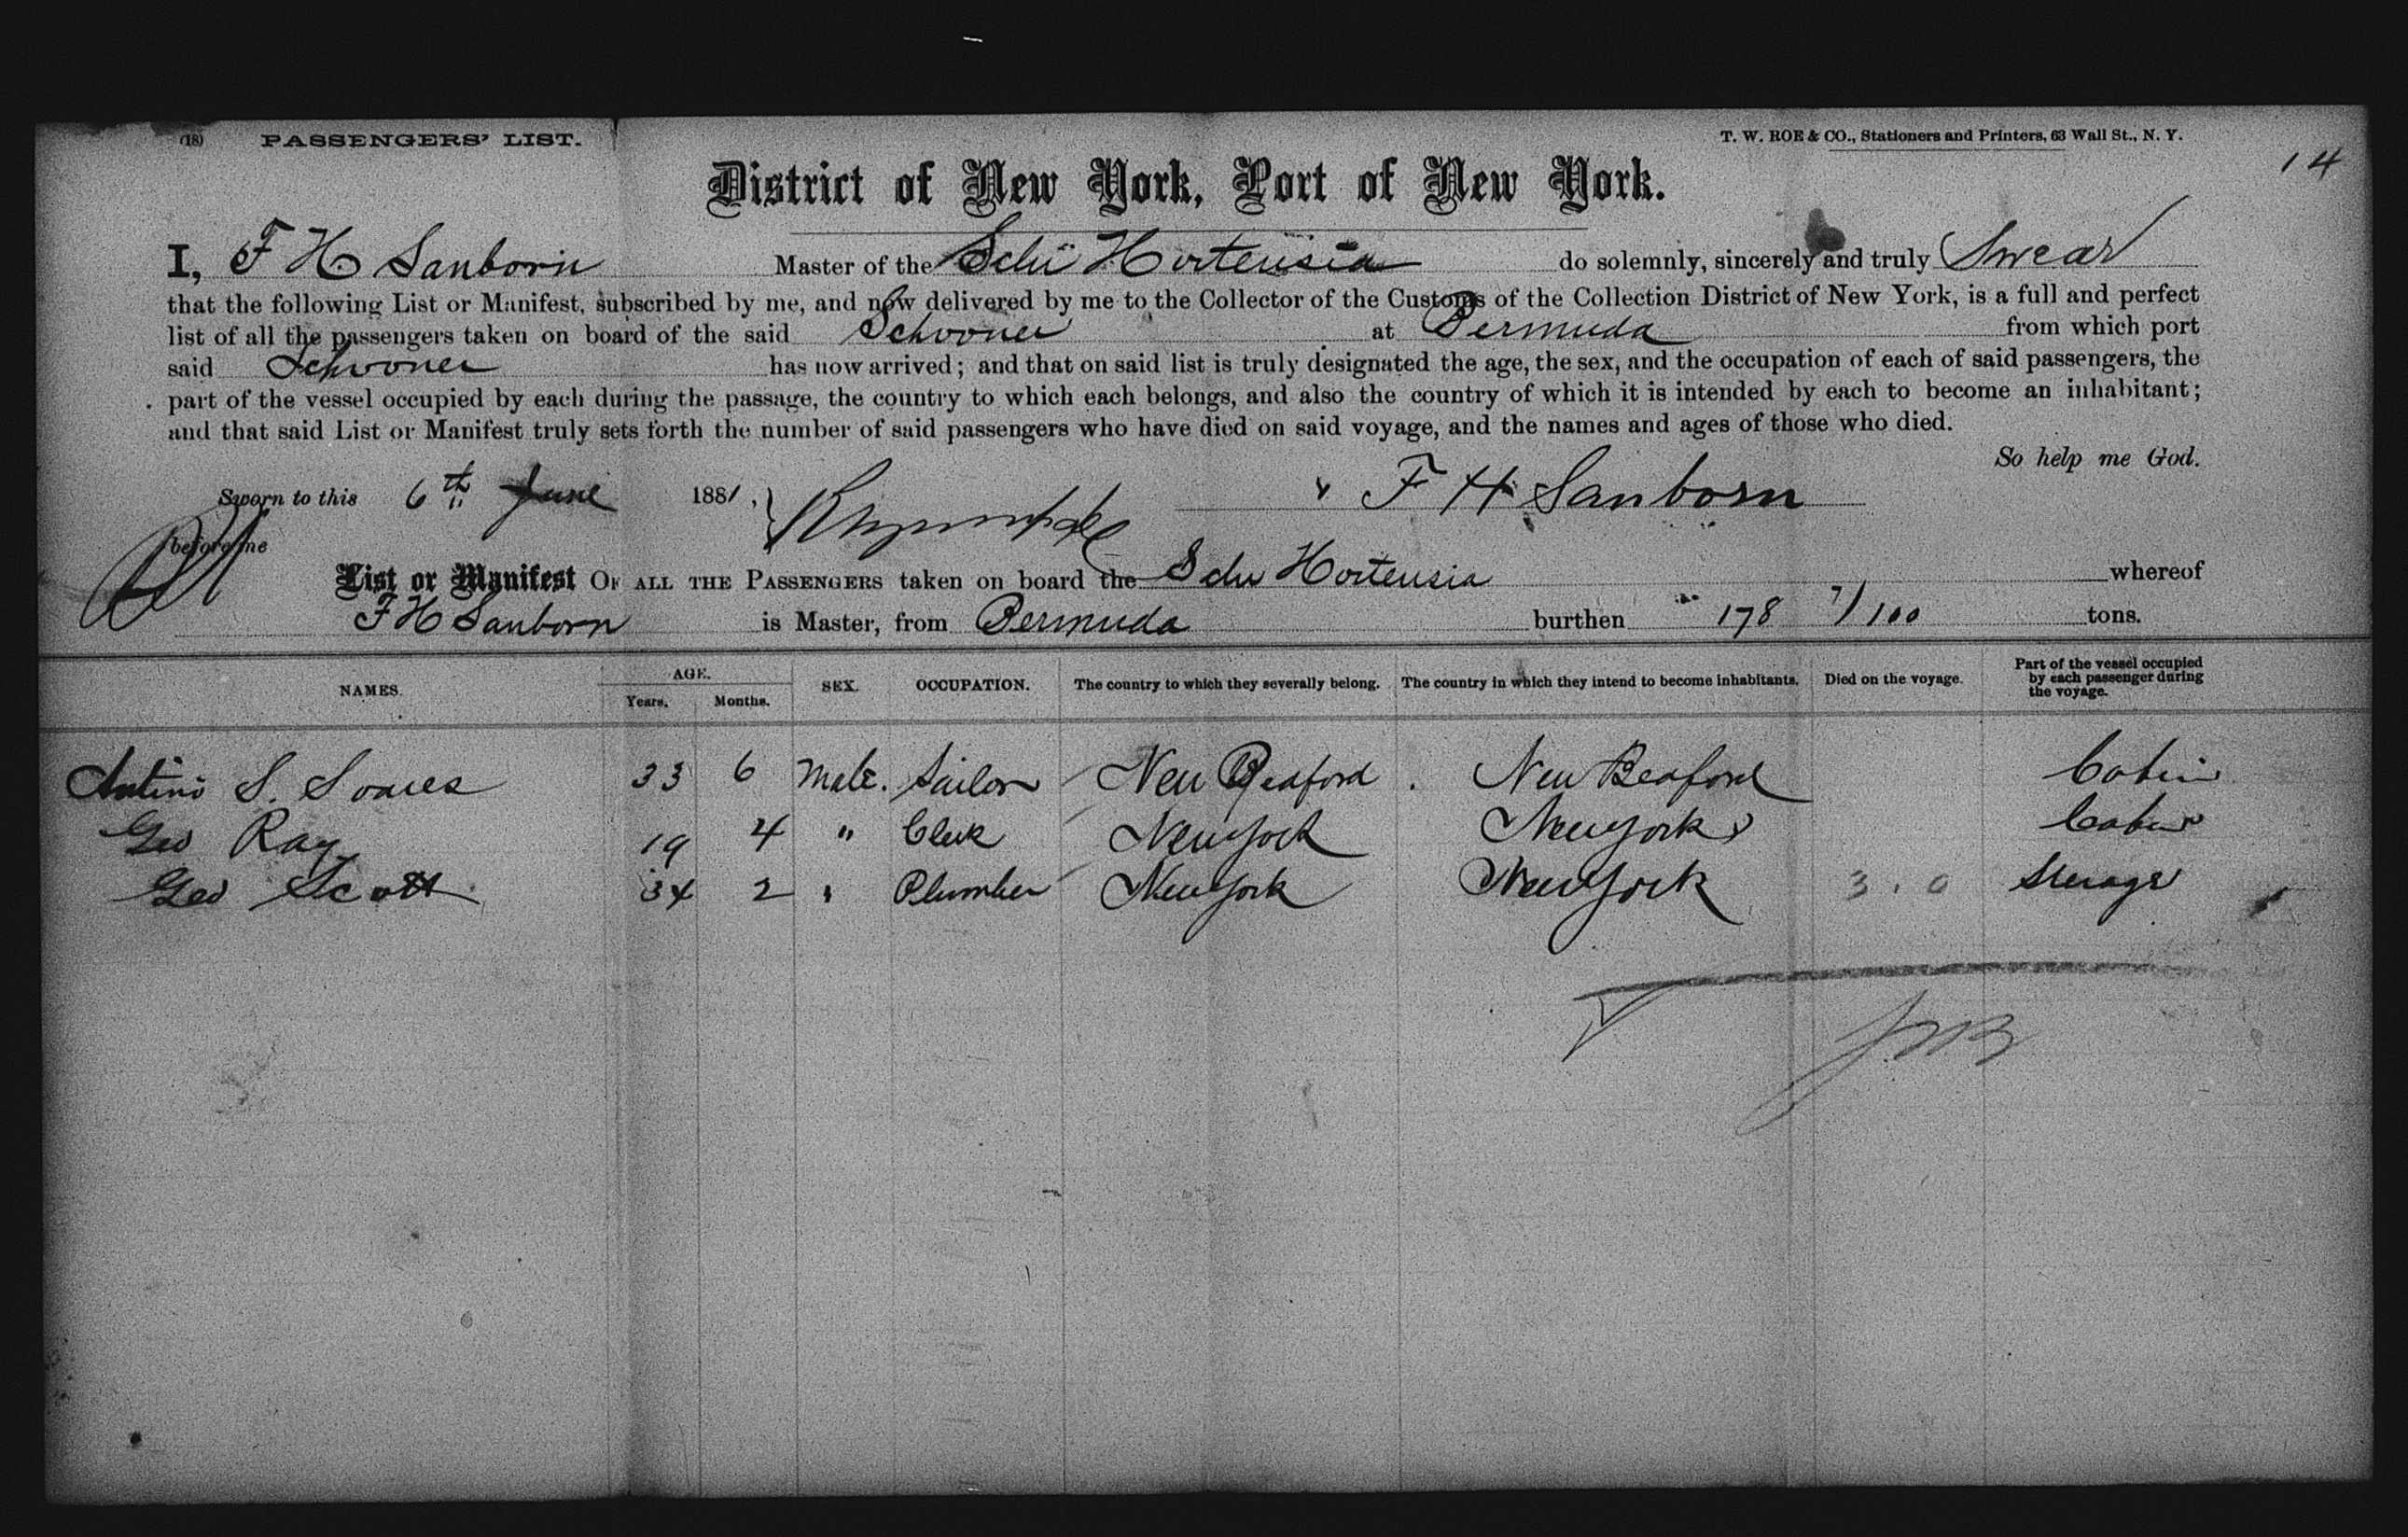 (18) PASSENGERS' LIST. T. W. ROE & CO., Stationers and Printers, 63 Wall St., N. Y.
14
District of New York, Port of New York.
I, F H Sanborn Master of the Schr Hortensia do solemnly, sincerely and truly Swear
that the following List or Manifest, subscribed by me, and now delivered by me to the Collector of the Customs of the Collection District of New York, is a full and perfect
list of all the passengers taken on board of the said Schooner at Bermuda from which port
said Schooner has now arrived; and that on said list is truly designated the age, the sex, and the occupation of each of said passengers, the
part of the vessel occupied by each during the passage, the country to which each belongs, and also the country of which it is intended by each to become an inhabitant;
and that said List or Manifest truly sets forth the number of said passengers who have died on said voyage, and the names and ages of those who died.
So help me God.
Sworn to this 6th June 1881, F H Sanborn
before me
List or Manifest OF ALL THE PASSENGERS taken on board the Schr Hortensia whereof
F H Sanborn is Master, from Bermuda burthen 178 7/100 tons.
NAMES. AGE. Years. Months. SEX. OCCUPATION. The country to which they severally belong. The country in which they intend to become inhabitants. Died on the voyage. Part of the vessel occupied by each passenger during the voyage.
S. Soares 33 6 Male. Sailor New Beaford New Beaford Cabin
Geo Ray 19 4 " Clerk New York New York Cabin
Geo Scott 34 2 " Plumber New York New York 3. 0 Sterage